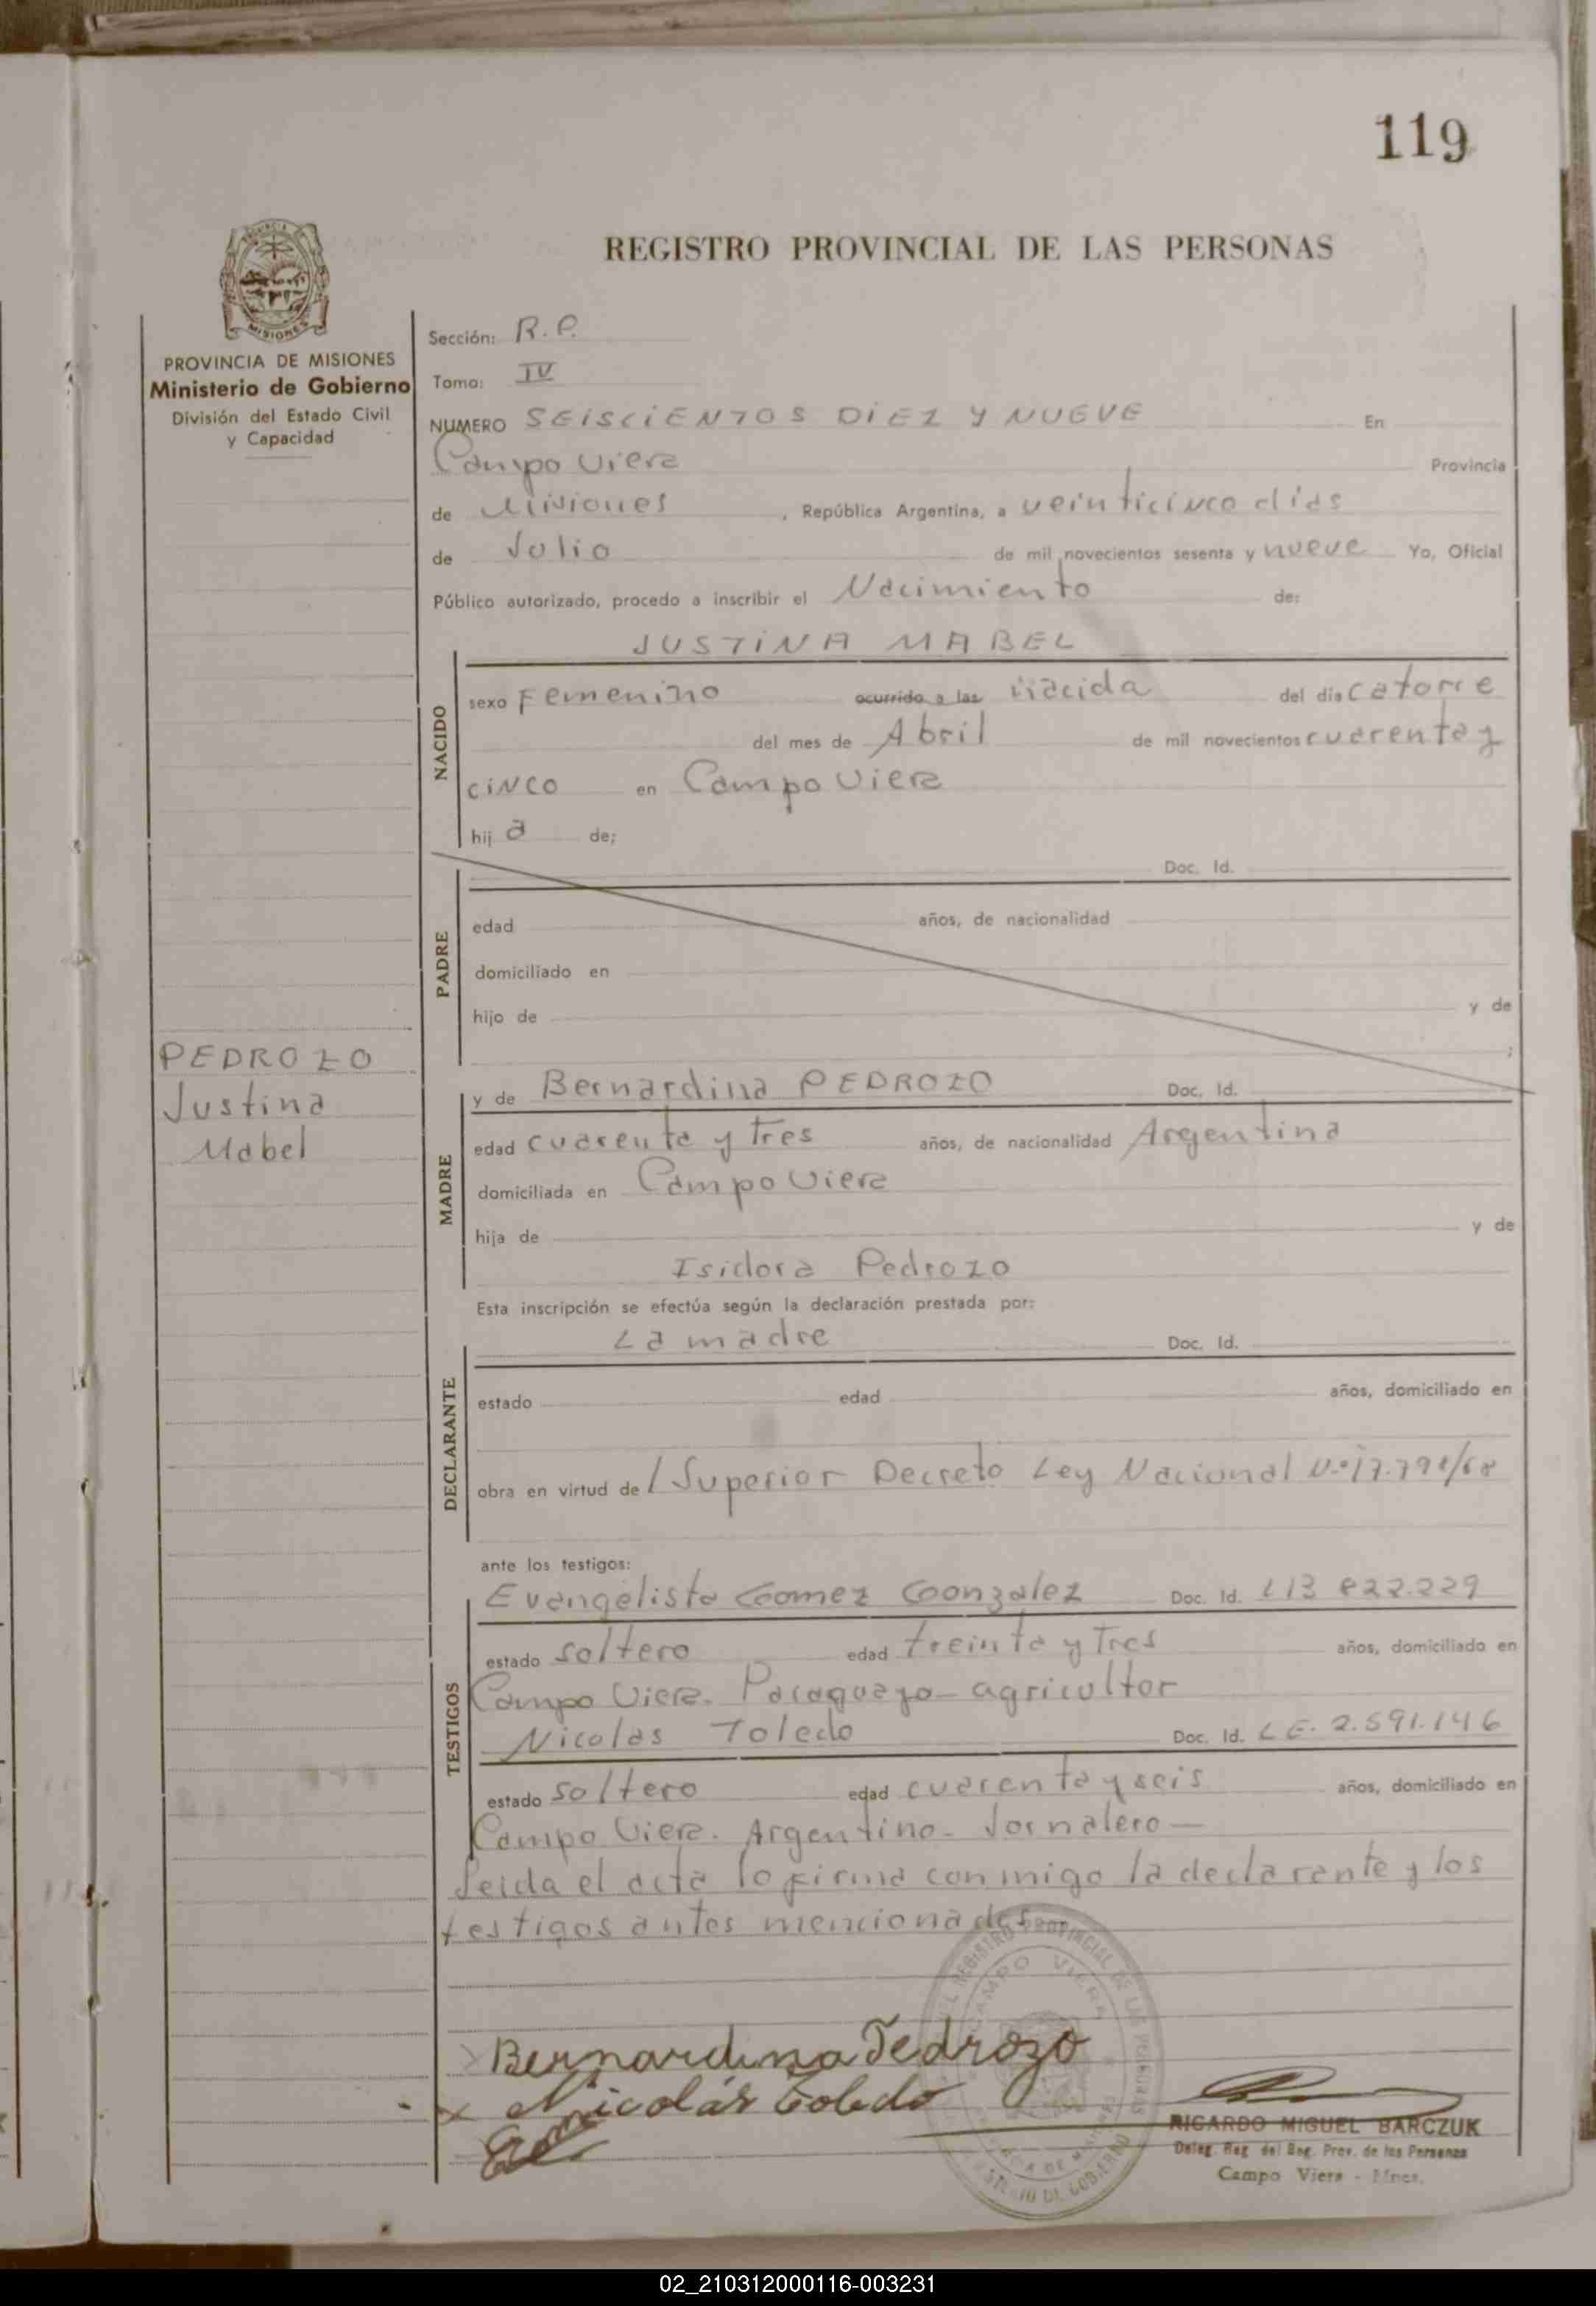 119
REGISTRO PROVINCIAL DE LAS PERSONAS
MISIONES
PROVINCIA DE MISIONES
Ministerio de Gobierno
División del Estado Civil
y Capacidad
Sección: R.P.
Tomo: IV
NUMERO SEISCIENTOS DIEZ Y NUEVE En
Campo Viera Provincia
de Misiones , República Argentina, a veinticinco dias
de Julio de mil novecientos sesenta y nueve Yo, Oficial
Público autorizado, procedo a inscribir el Nacimiento de:
JUSTINA MABEL
NACIDO
sexo Femenino ocurrido a las nacida del día catorce
del mes de Abril de mil novecientos cuarenta y
cinco en Campo Viera
hij a de;
PADRE
Doc. Id.
edad años, de nacionalidad
domiciliado en
hijo de y de
;
PEDROZO
Justina
Mabel
MADRE
y de Bernardina PEDROZO Doc. Id.
edad cuarenta y tres años, de nacionalidad Argentina
domiciliada en Campo Viera
hija de y de
Isidora Pedrozo
Esta inscripción se efectúa según la declaración prestada por:
DECLARANTE
La madre Doc. Id.
estado edad años, domiciliado en
obra en virtud de / Superior Decreto Ley Nacional N.º
ante los testigos:
TESTIGOS
Evangelista Gomez Gonzalez Doc. Id. 822.229
estado soltero edad treinta y Tres años, domiciliado en
Campo Viera. Paraguayo - agricultor
Nicolas Toledo Doc. Id. L E. 2.591.146
estado soltero edad cuarenta y seis años, domiciliado en
Campo Viera. Argentino - Jornalero -
Leida el acta lo firma conmigo la declarante y los
testigos antes mencionados
REGISTRO PROVINCIAL DE LAS PERSONAS
CAMPO VIERA
Bernardina Pedrozo
x Nicolás Toledo
RICARDO MIGUEL BARCZUK
Deleg Reg del Reg. Prov. de las Personas
Campo Viera - Mnes.
02_210312000116-003231